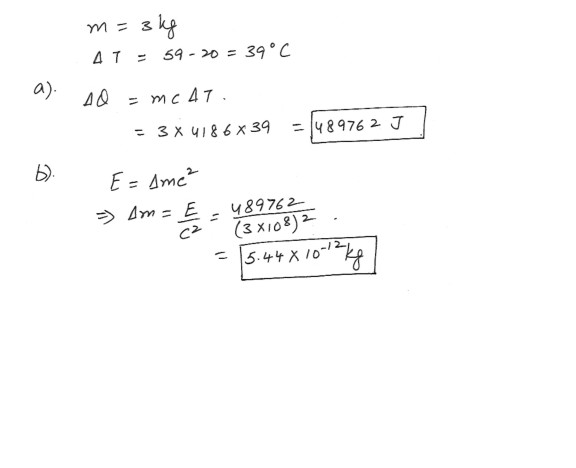 m = 3 kg
ΔT = 59 - 20 = 39°C
a). ΔQ = mcΔT.
= 3 × 4186 × 39 = 489762 J
b). E = Δmc²
⇒ Δm = E/c² = 489762/(3×10⁸)² .
= 5.44 × 10⁻¹² kg